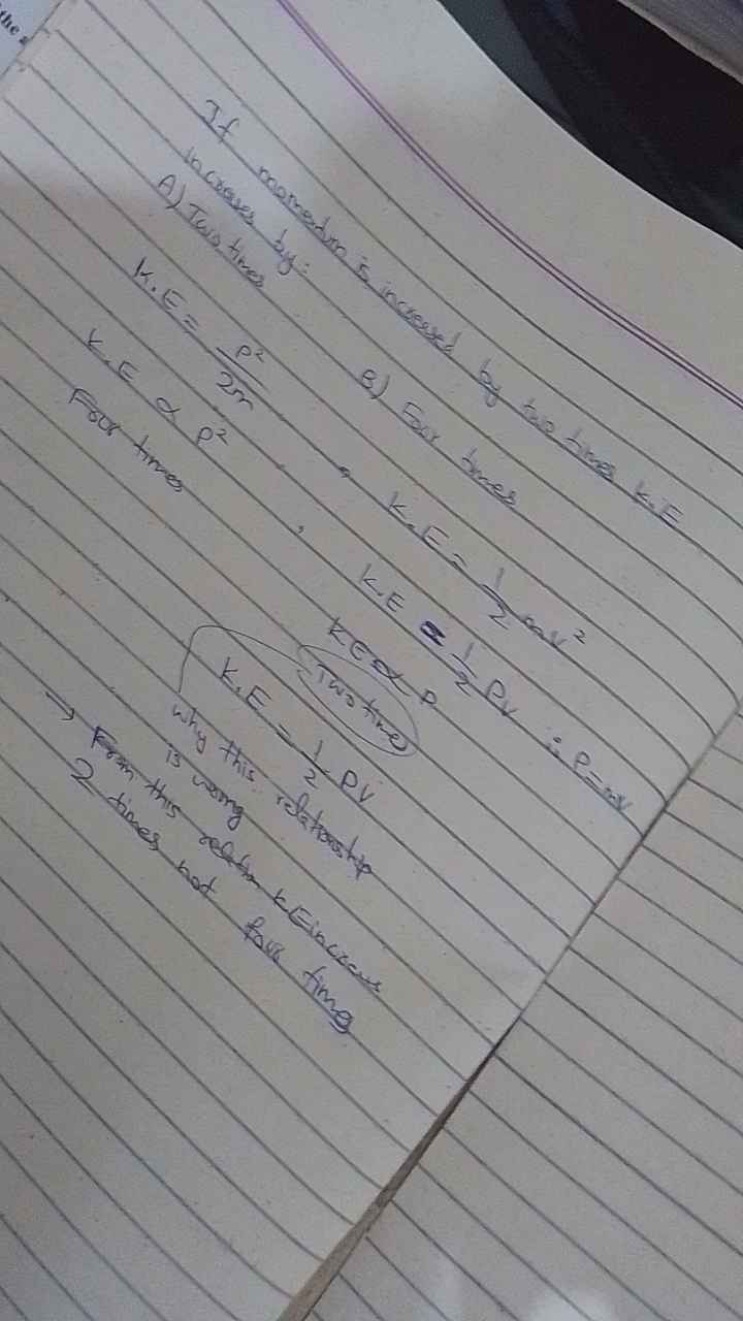 the
If momentum is increased by two times K.E
increases by:
A) Two times B) Four times
K.E = P²/2m , K.E = 1/2 mv²
K.E ∝ P² , KE = 1/2 PV ∵ P=mv
Four times KE ∝ P
Two times
K.E = 1/2 PV
why this relationship
is wrong
→ From this relation KE increase
2 times not four time